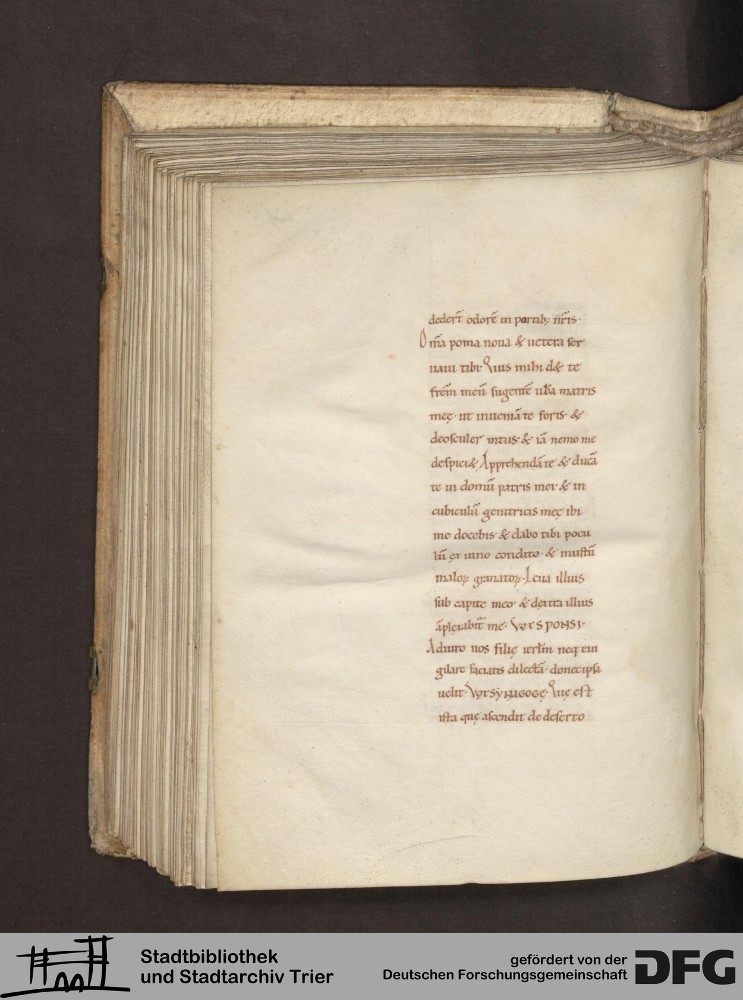 dedert̄ odorē in portib; nr̄is·
Om̄a poma noua & uetera ser
uaui tibi· Quis mihi d& te
frēm meū sugentē ubera matris
meę· ut inueniā te foris· &
deosculer intus· & iā nemo me
despici& Apprehendā te & ducā
te in domū patris mei· & in
cubiculū genitricis meę ibi
me docebis· & dabo tibi pocu
lū ex uino condito· & mustū
maloꝝ granatoꝝ· Leua illius
sub capite meo· & dextra illius
āplexabit̄ me· VOX SPONSI·
Adiuro uos filię ierlm̄ neq; eui
gilare faciatis dilectā· donec ipsa
uelit· VOX SYNAGOGĘ· Quę est
ista quę ascendit de deserto
Stadtbibliothek
und Stadtarchiv Trier
gefördert von der
Deutschen Forschungsgemeinschaft
DFG